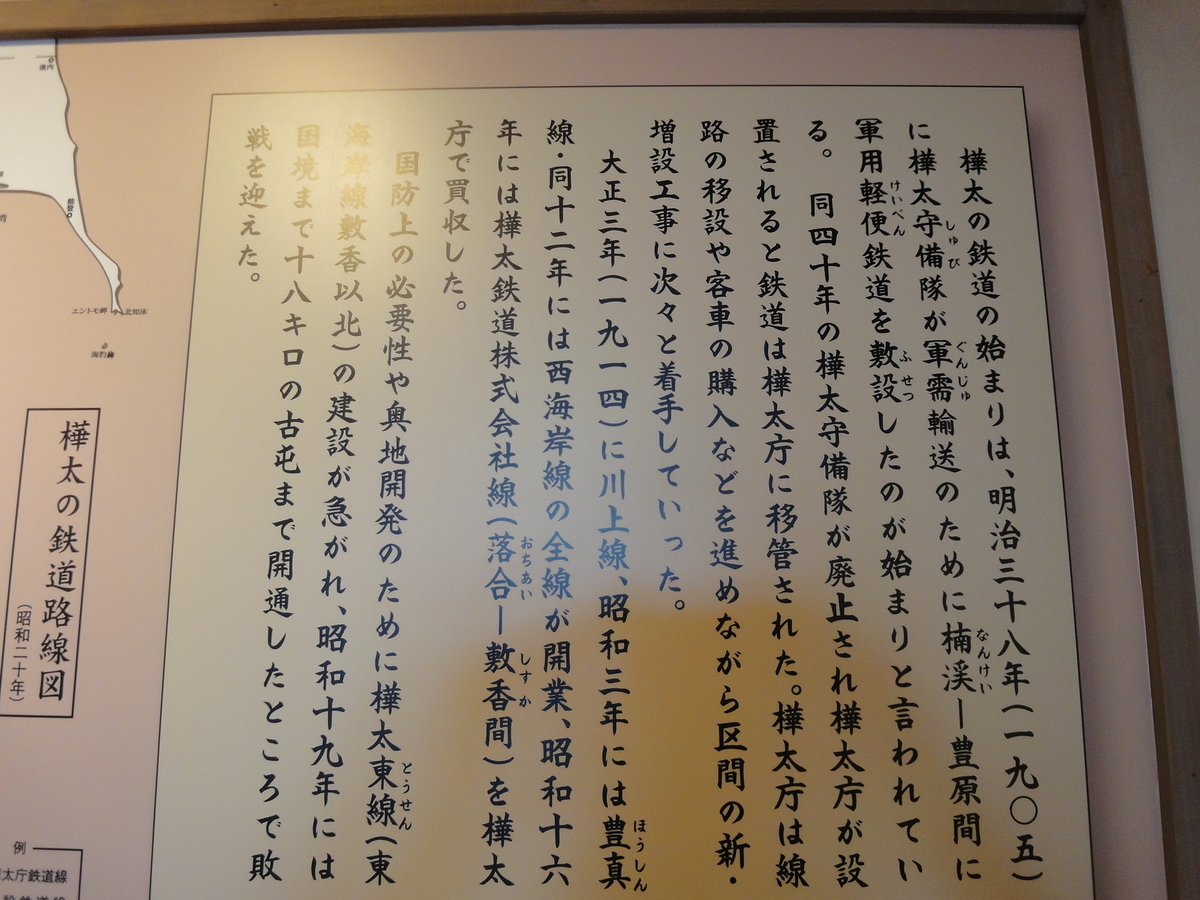 樺太の鉄道の始まりは、明治三十八年(一九〇五)
に樺太守備隊が軍需輸送のために楠渓ー豊原間に
軍用軽便鉄道を敷設したのが始まりと言われてい
る。 同四十年の樺太守備隊が廃止され樺太庁が設
置されると鉄道は樺太庁に移管された。樺太庁は線
路の移設や客車の購入などを進めながら区間の新・
増設工事に次々と着手していった。
大正三年(一九一四)に川上線、昭和三年には豊真
線・同十二年には西海岸線の全線が開業、昭和十六
年には樺太鉄道株式会社線(落合ー敷香間)を樺太
庁で買収した。
国防上の必要性や奥地開発のために樺太東線(東
海岸線敷香以北)の建設が急がれ、昭和十九年には
国境まで十八キロの古屯まで開通したところで敗
戦を迎えた。
しゅび
ぐんじゅ
なんけい
けいべん
ふせつ
ほうしん
おちあい
しすか
とうせん
樺太の鉄道路線図
(昭和二十年)
エントモ岬
北知床
海豹島
能登
例
太庁鉄道線